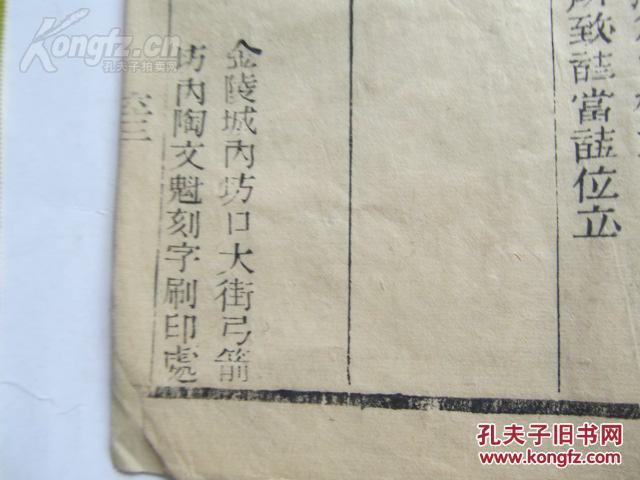 所致註當註位立
金陵城內坊口大街弓箭
坊內陶文魁刻字刷印處
Kongfz.com
孔夫子拍卖网
孔夫子旧书网
www.kongfz.com